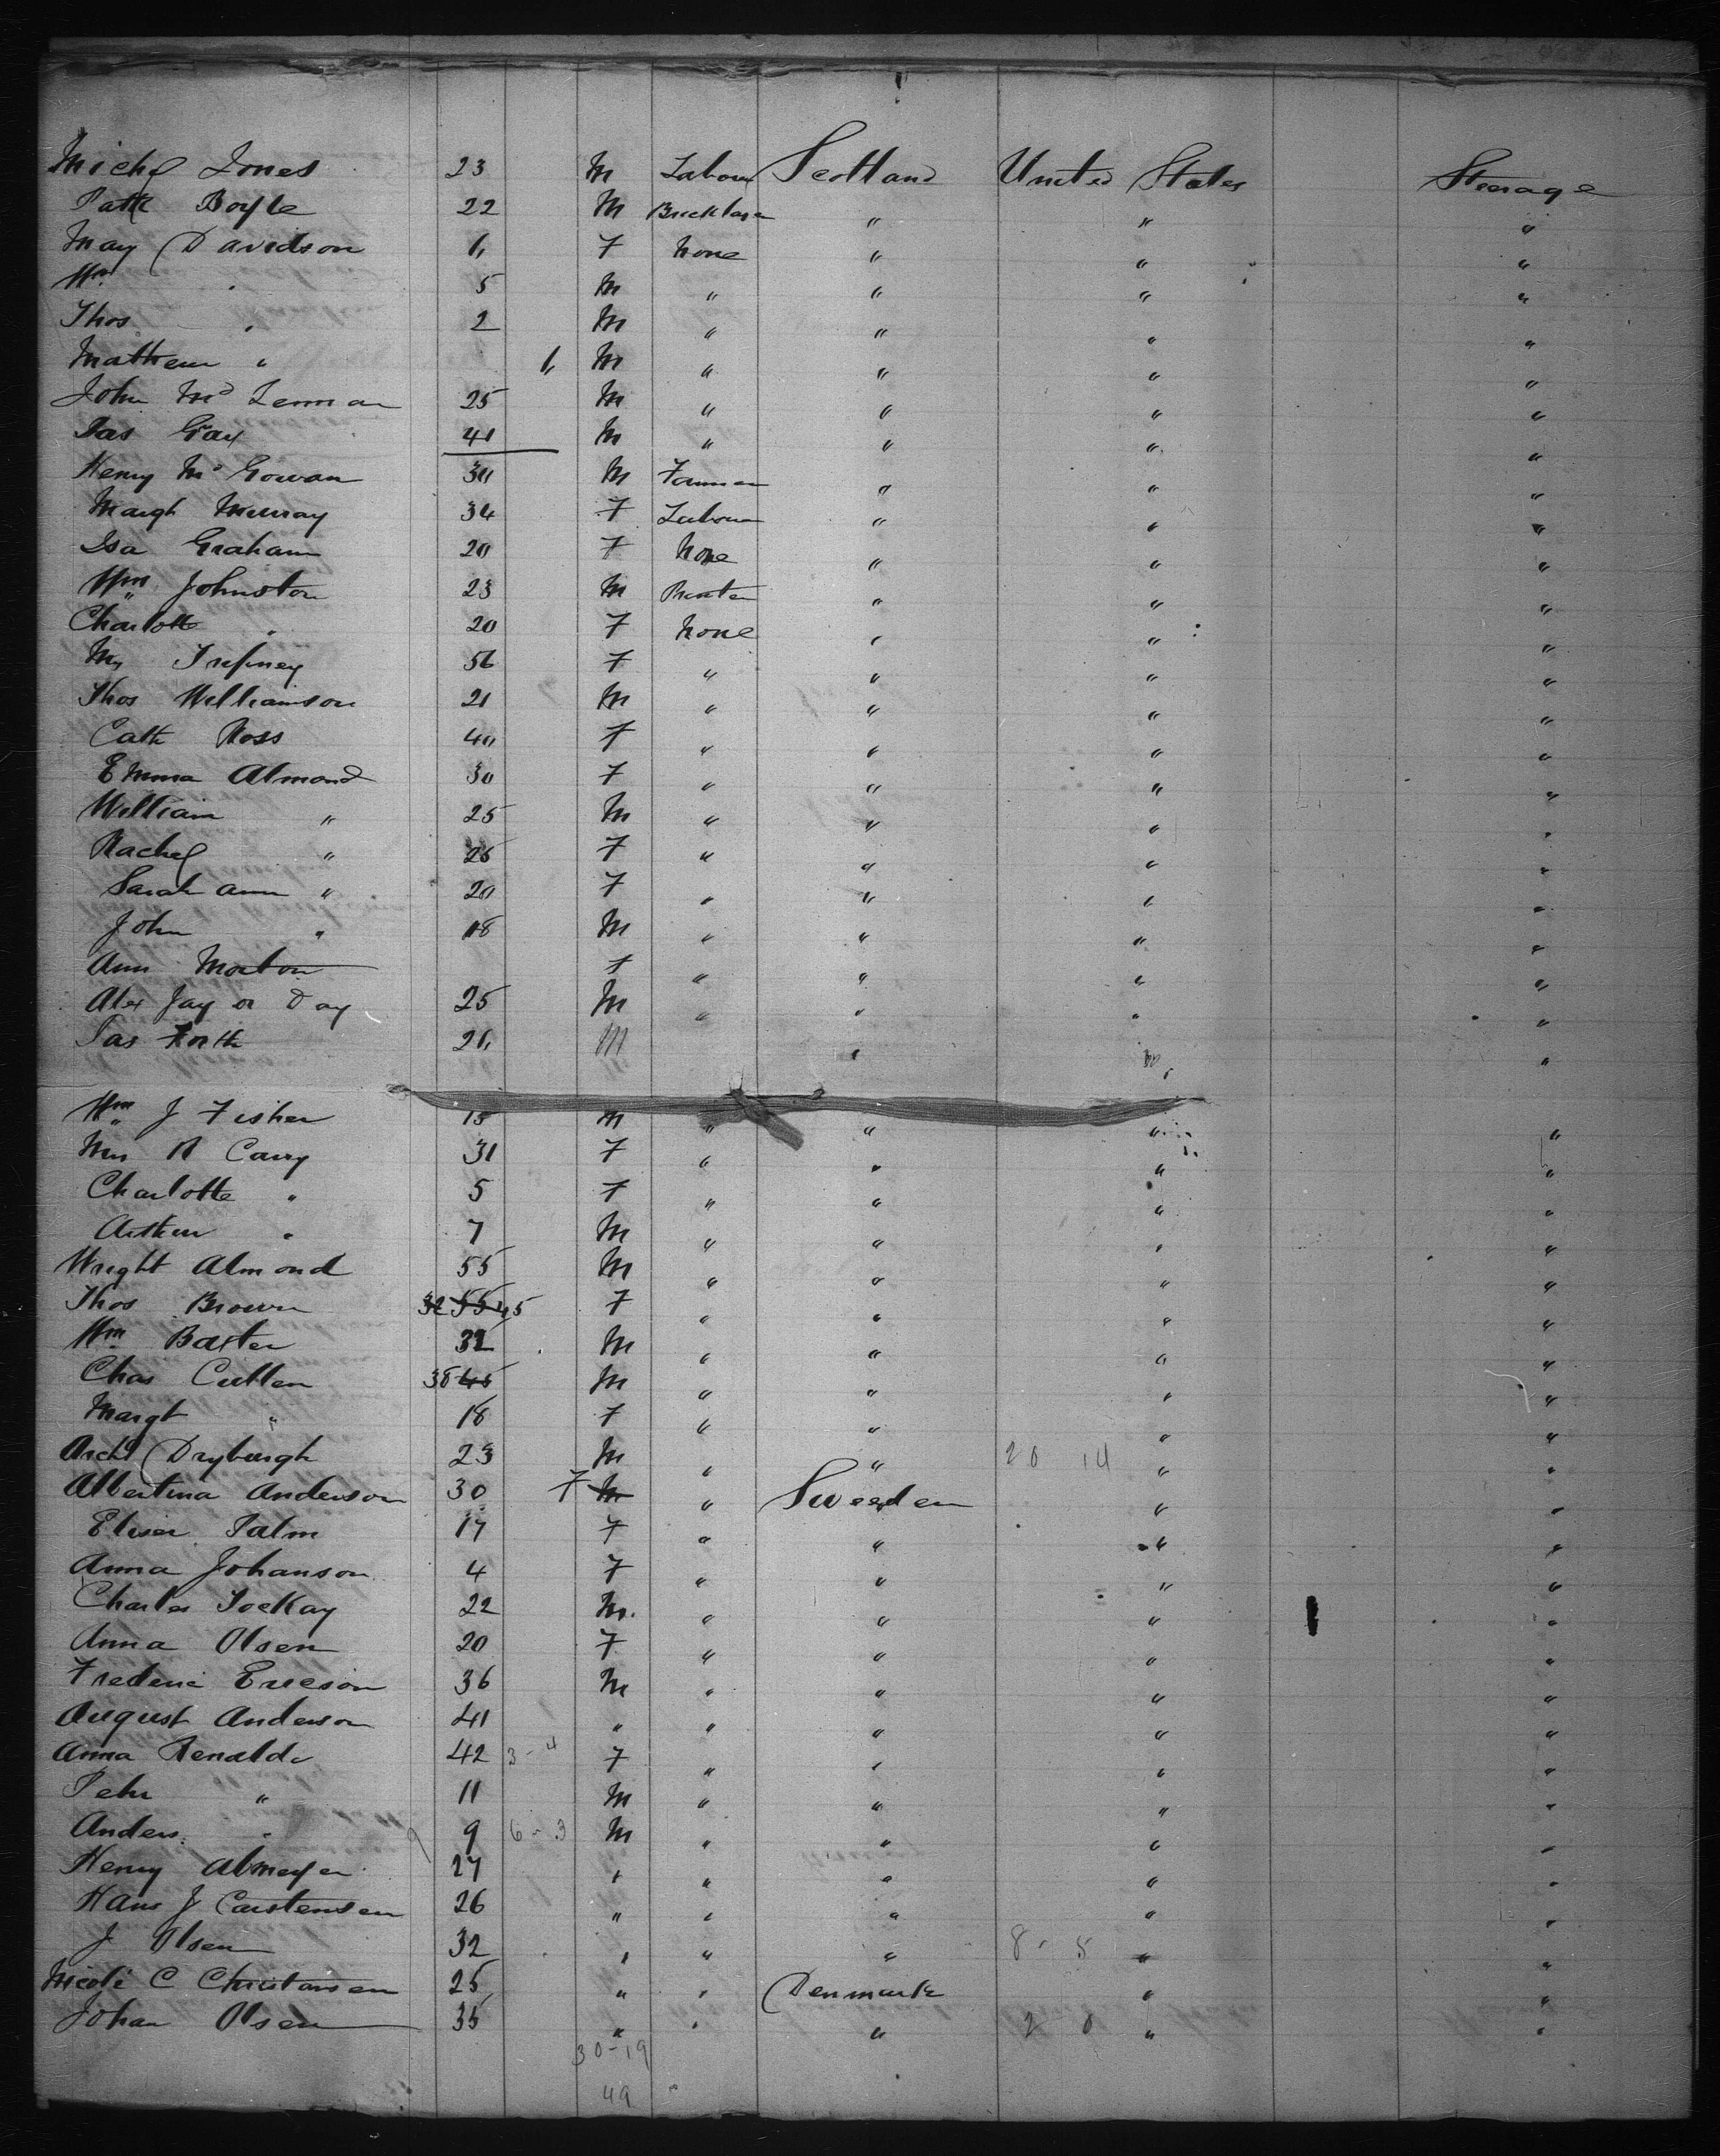 Michl Jones 23 M Labour Scotland United States Steerage
Patk Boyle 22 M Bricklayer " " "
May Davidson 6 F None " " "
Wm " 5 M " " " "
Thos " 2 M " " " "
Mathew " 6 M " " " "
John Mc Lennan 25 M " " " "
Jas Gray 41 M " " " "
Henry Mc Gowan 30 M Farmer " " "
Margt Murray 34 F Labour " " "
Isa Graham 20 F None " " "
Wm Johnston 23 M Printer " " "
Charlotte " 20 F None " " "
Mrs 56 F " " " "
Thos Williamson 21 M " " " "
Cath Ross 40 F " " " "
Emma Almond 30 F " " " "
William " 25 M " " " "
Rachel " 25 F " " " "
Sarah Ann " 20 F " " " "
John " 18 M " " " "
Ann Morton F " " " "
Alex Jay or Day 25 M " " " "
Jas Forth 26 M " " "
Wm J Fisher 15 M " " " "
Mrs R Carry 31 F " " " "
Charlotte " 5 F " " " "
Arthur " 7 M " " " "
Wright Almond 55 M " " " "
Thos Brown 32 55 45 F " " " "
Wm Baxter 32 M " " " "
Chas Cullen 38 45 M " " " "
Margt " 18 F " " " "
Archd Dryburgh 23 M " " 20 14 " "
Albertina Anderson 30 F M " Sweeden " "
Eliser Palm 17 F " " " "
Anna Johanson 4 F " " " "
Charles 22 M. " " " "
Anna Olsen 20 F " " " "
Frederic Ericson 36 M " " " "
August Anderson 41 " " " " "
Anna Renalde 42 3-4 F " " " "
Pehr " 11 M " " " "
Anders " 9 9 6-3 M " " " "
Henry Almeyer 27 " " " " "
Hans J Carstensen 26 " " " " "
J Olsen 32 " " " 8-5 " "
Nicoli C Christansen 25 " " Denmark " "
Johan Olsen 35 " " " 2 0 " "
30-19
49